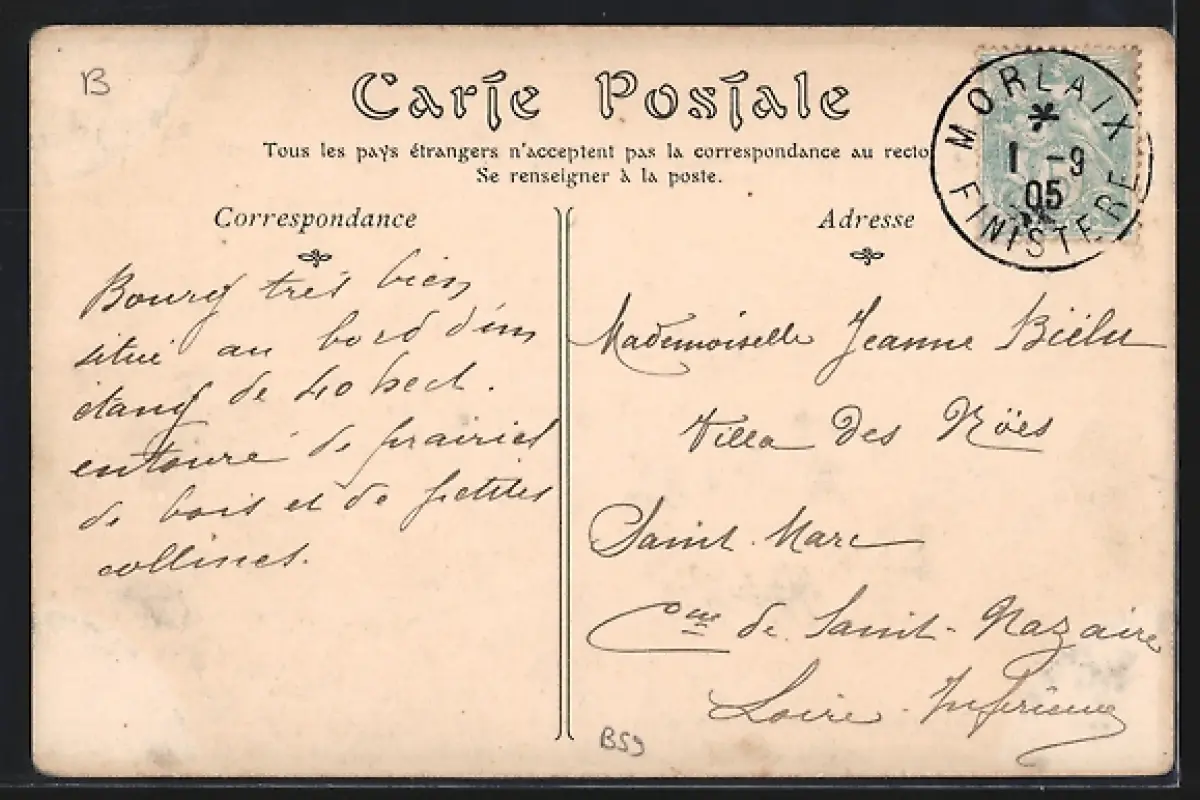 B
Carte Postale
Tous les pays étrangers n'acceptent pas la correspondance au recto
Se renseigner à la poste.
MORLAIX
1 -9
05
FINISTERE
Correspondance
Bourg très bien
situé au bord d'un
étang de 40 hect.
entouré de prairies
de bois et de petites
collines.
Adresse
Mademoiselle Jeanne
Villa des Nöes
Saint-Marc
Cne de Saint-Nazaire
Loire-Inférieure
B59